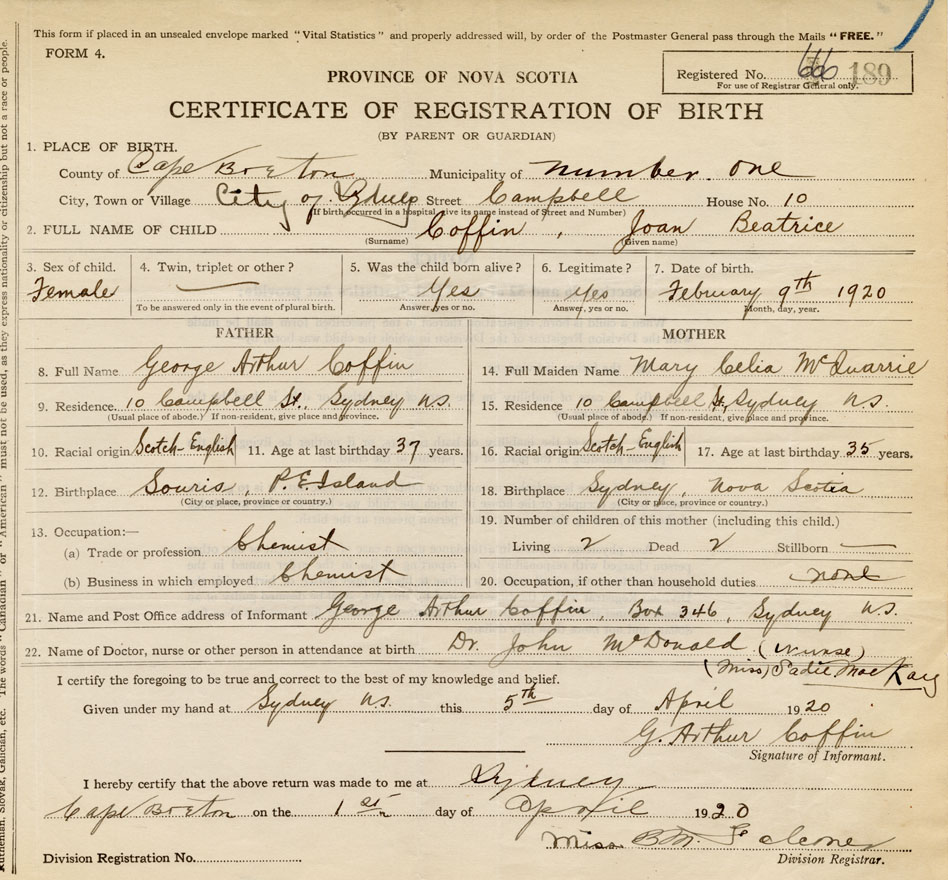 This form if placed in an unsealed envelope marked "Vital Statistics" and properly addressed will, by order of the Postmaster General pass through the Mails "FREE."
FORM 4.
Registered No. 666 189
For use of Registrar General only.
PROVINCE OF NOVA SCOTIA
CERTIFICATE OF REGISTRATION OF BIRTH
(BY PARENT OR GUARDIAN)
1. PLACE OF BIRTH.
County of Cape Breton Municipality of Number One
City, Town or Village City of Sydney Street Campbell House No. 10
(If birth occurred in a hospital, give its name instead of Street and Number)
2. FULL NAME OF CHILD Coffin, Joan Beatrice
(Surname) (Given name)
3. Sex of child. 4. Twin, triplet or other? 5. Was the child born alive? 6. Legitimate? 7. Date of birth.
Female — Yes Yes February 9th 1920
To be answered only in the event of plural birth. Answer, yes or no. Answer, yes or no. Month, day, year.
FATHER MOTHER
8. Full Name George Arthur Coffin 14. Full Maiden Name Mary Celia McQuarrie
9. Residence 10 Campbell St., Sydney N.S. 15. Residence 10 Campbell St., Sydney N.S.
(Usual place of abode.) If non-resident, give place and province. (Usual place of abode.) If non-resident, give place and province.
10. Racial origin Scotch-English 11. Age at last birthday 37 years. 16. Racial origin Scotch-English 17. Age at last birthday 35 years.
12. Birthplace Souris, P.E. Island 18. Birthplace Sydney, Nova Scotia
(City or place, province or country.) (City or place, province or country.)
13. Occupation:— 19. Number of children of this mother (including this child.)
(a) Trade or profession Chemist Living 2 Dead 2 Stillborn —
(b) Business in which employed Chemist 20. Occupation, if other than household duties none
21. Name and Post Office address of Informant George Arthur Coffin, Box 346, Sydney N.S.
22. Name of Doctor, nurse or other person in attendance at birth Dr. John McDonald (Nurse)
(Miss) Sadie MacKay
I certify the foregoing to be true and correct to the best of my knowledge and belief.
Given under my hand at Sydney N.S. this 5th day of April 1920
G. Arthur Coffin
Signature of Informant.
I hereby certify that the above return was made to me at Sydney
Cape Breton on the 1st day of April 1920
Miss B.M. Falconer
Division Registration No. Division Registrar.
Ruthenian, Slovak, Galician, etc. The words "Canadian" or "American" must not be used, as they express nationality or citizenship but not a race or people.